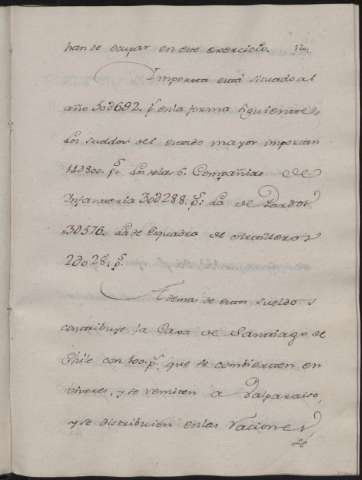 han se ocupar en este exercicio.
Importa este situado al
año 50$692. p.s en la forma siguiente
los sueldos del estado mayor importan
de las 6. Compañias de
Infanteria 30$288. p.s la de Pardos
la de Esquadra de Artilleros
2$028. p.s
Ademas de estos sueldos
contribuye la Caxa de Santiago de
Chile con p.s que se combierten en
viveres, y se remiten a Valparaiso,
y se distribuien en las raciones